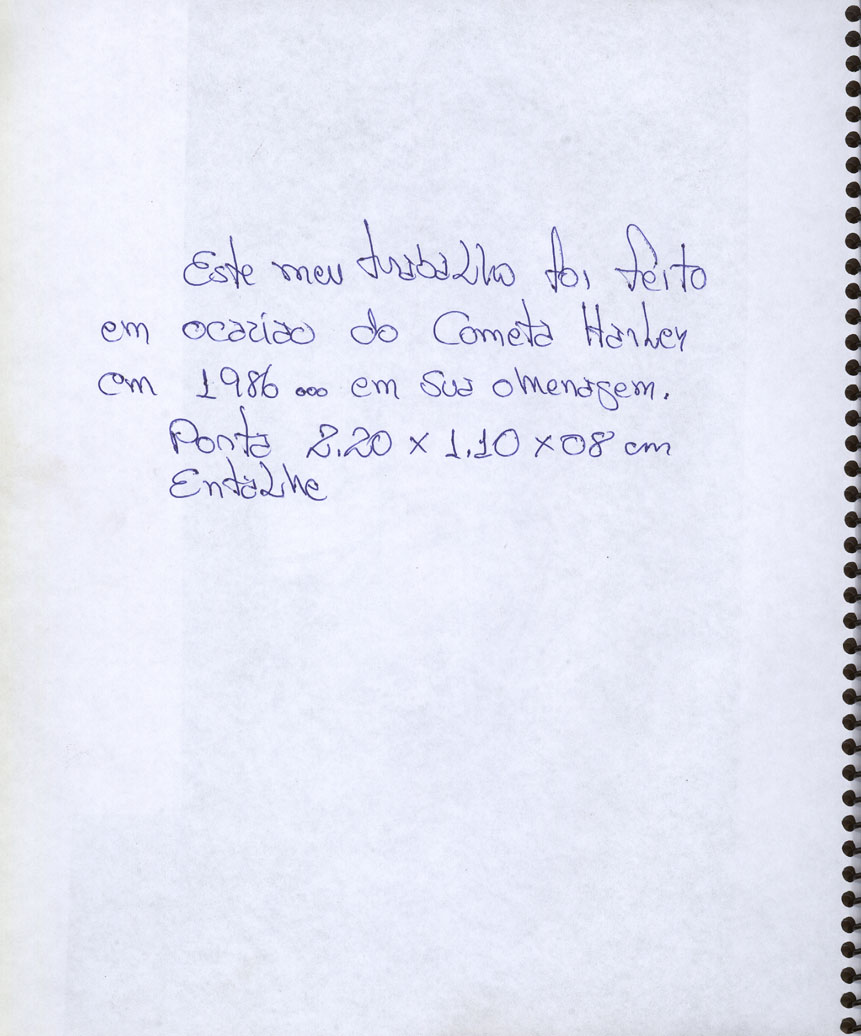 Este meu trabalho foi feito
em ocazião do Cometa Harley
em 1986 ... em sua omenagem.
Porta 2.20 x 1.10 x 08 cm
Entalhe